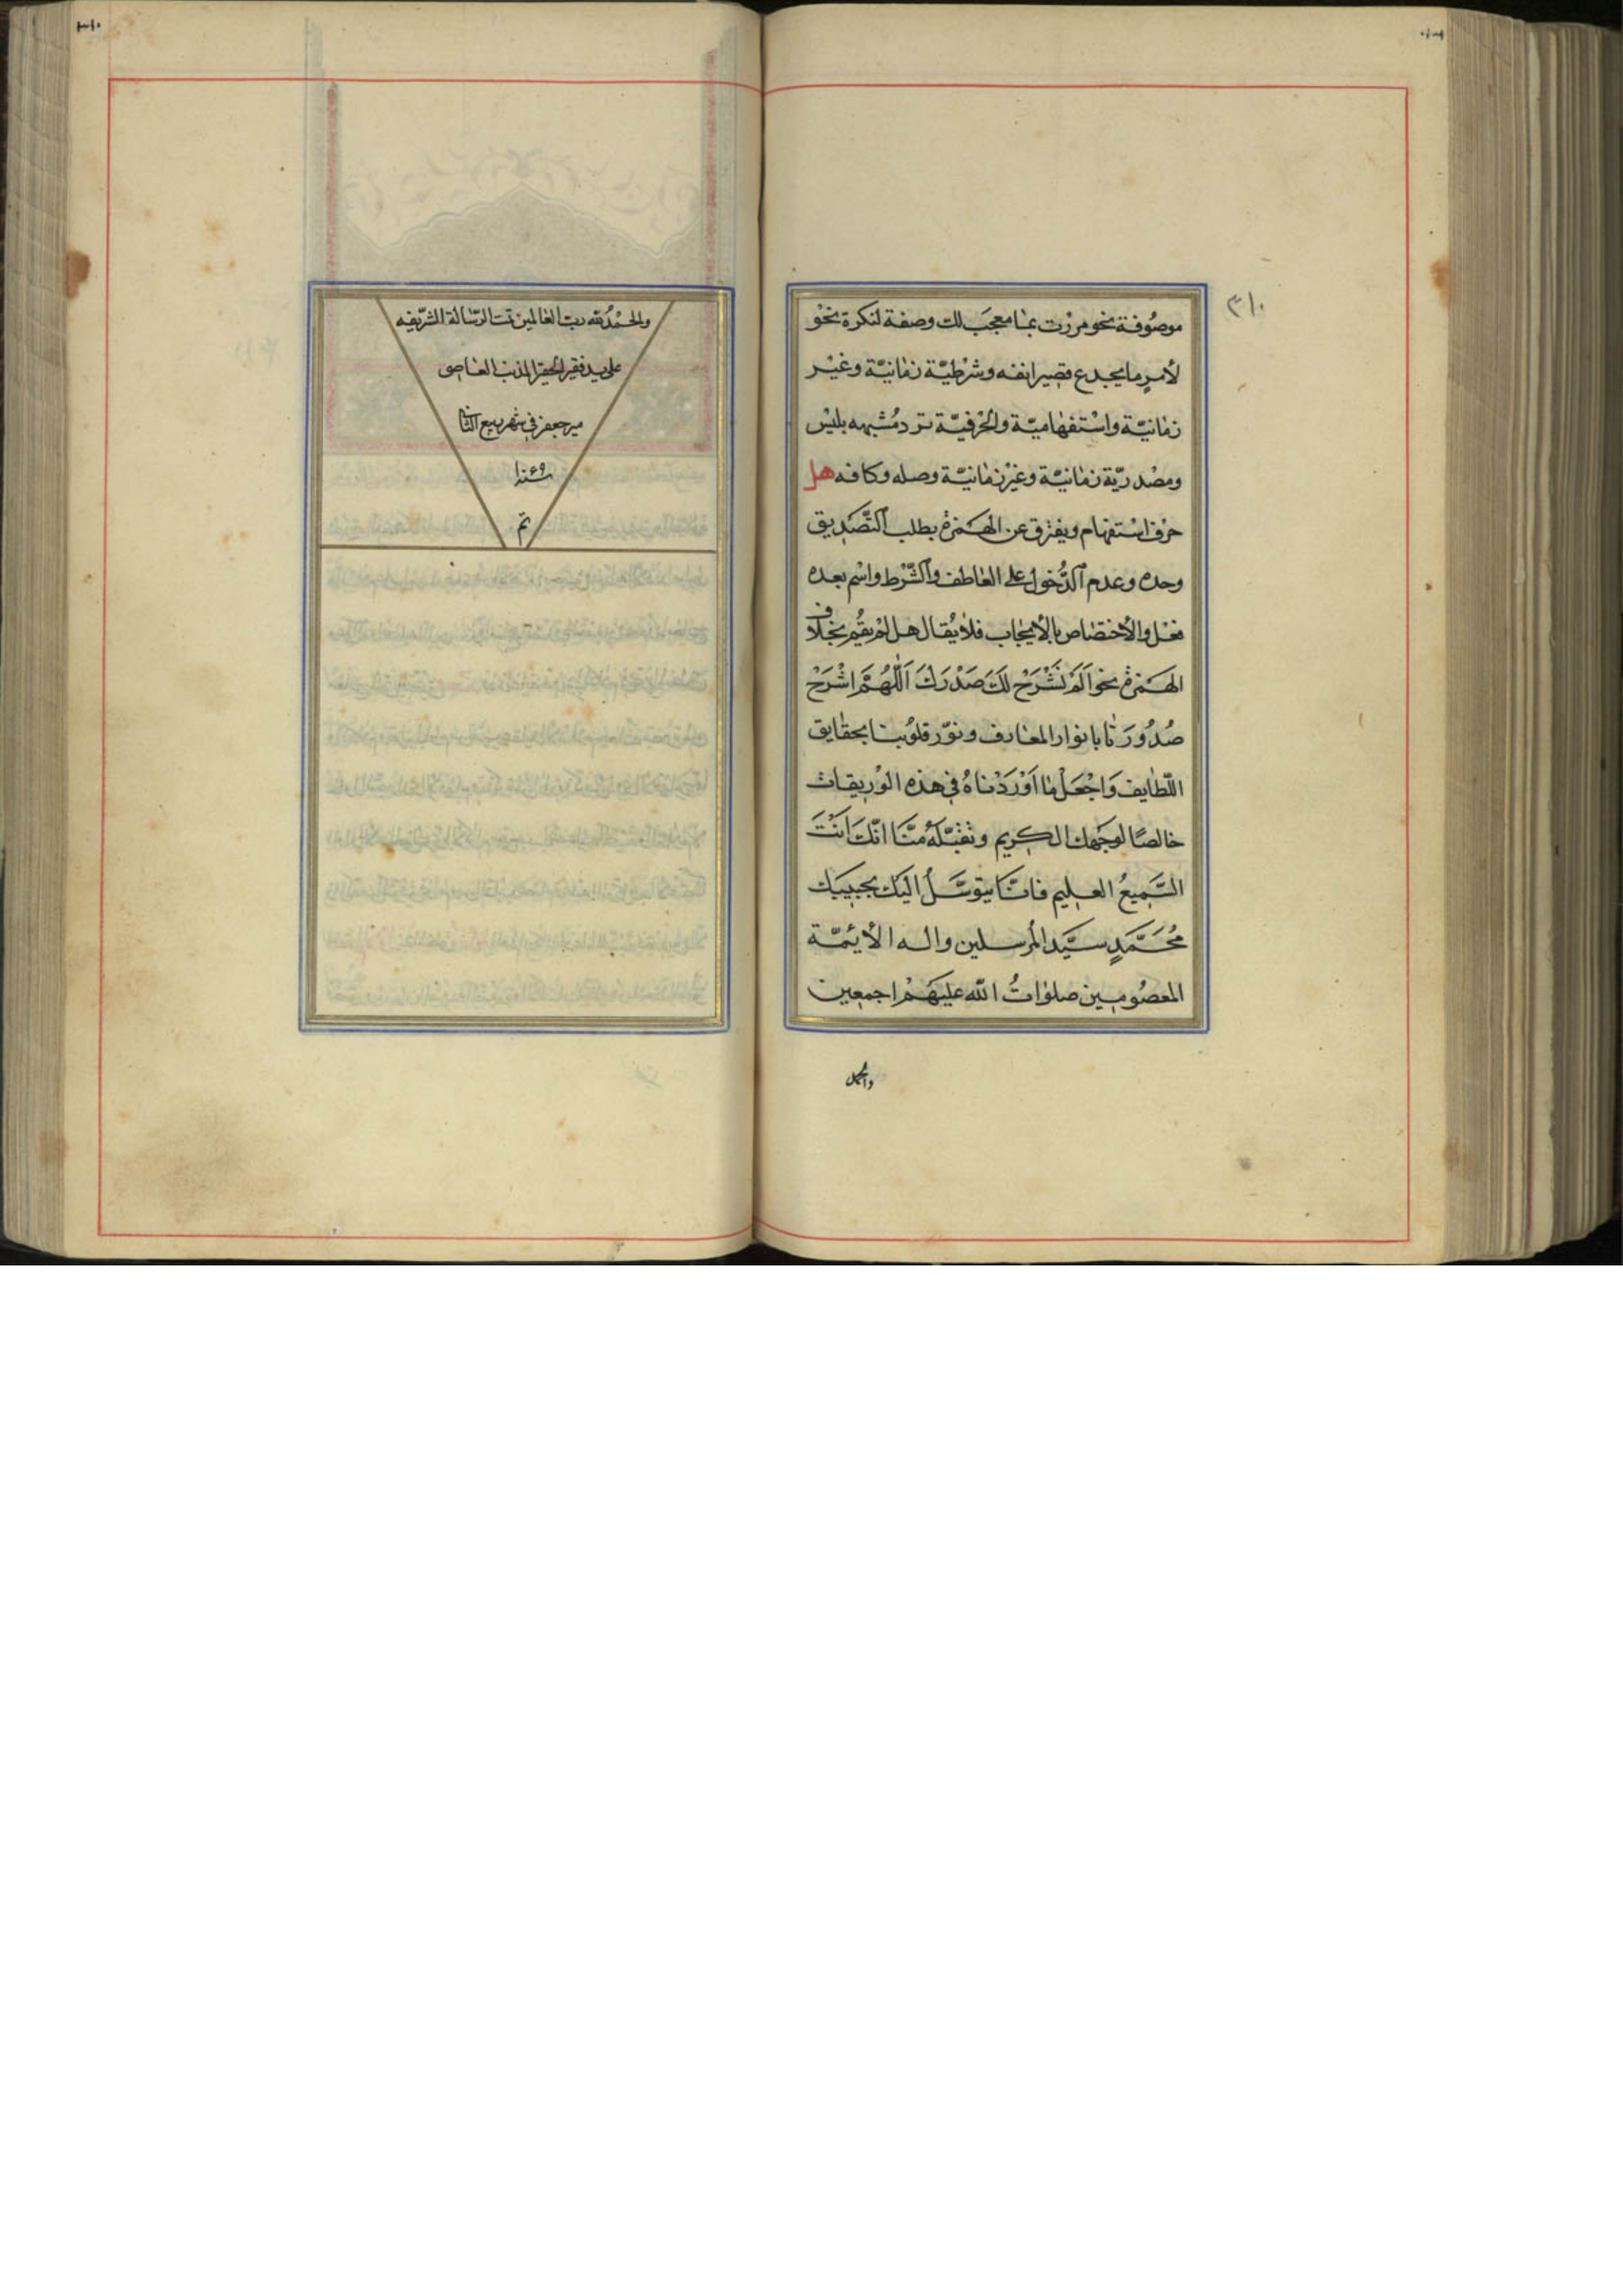 موصُوفة نحو مررْت بمٰا معجبَ لك وصفة لنكرة نحْو
لأمرٍ ما يجدع قصير انفه وشرْطيّة زمٰانيّة وغيْر
زمٰانيّة واسْتفهٰاميّة والحْرفيّة ترد مُشبهه بليْس
ومصْدريّة زمٰانيّة وغيْر زمٰانيّة وصله وكافه هل
حرْف اسْتفهٰام ويفترق عن الهَمزة بطلب التَّصَديق
وحده وعدم الدُّخول على العٰاطف والشّرْط واسْم بعده
فعْل والأختصٰاص بالأيجٰاب فلا يُقال هل لمْ يقُم بخلاف
الهَمزة نحو اَلَمْ نَشْرَحْ لَكَ صَدْرَكَ اَللّٰهُمَّ اشْرَحْ
صُدُورَنٰا بانوار المعٰارف ونوّر قلوُبنا بحقٰايق
اللّطٰايف وَاجْعَلْ مٰا اَوْرَدْناهُ فى هذه الوُريقات
خالصًا لوجَهك الكريم وتقبّلهُ منَّا انّكَ اَنْتَ
السَّميعُ العليم فانّا نتوسَّلُ اليَك بحبيبك
مُحَمَّدٍ سيَّد المُرسلين واله الأيمّة
المعصُومين صلوٰاتُ الله عليهَمْ اجمعين
والحمد
والحمْدُ لله ربّ العٰالمين تمت الرّسٰالة الشّريفه
على يد فقير الحقير المذنب العٰاصى
مير جعفر فى شهر ربيع الثانى
تم
٣١٠